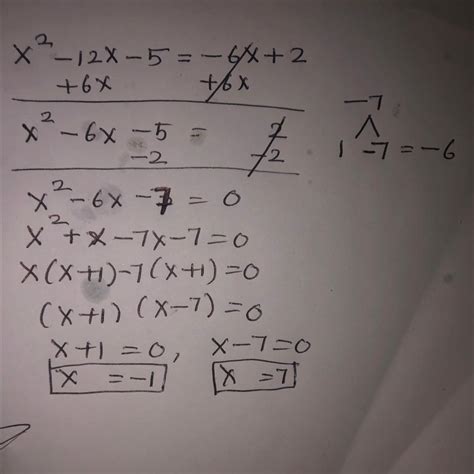 x² -12x -5 = -6x + 2
+6x +6x
x² -6x -5 = 2
-2 -2
x² -6x -7 = 0
x² + x -7x -7 = 0
x(x+1) -7(x+1) = 0
(x+1) (x-7) = 0
x+1 = 0, x-7=0
x = -1 x = 7
-7
1 -7 = -6